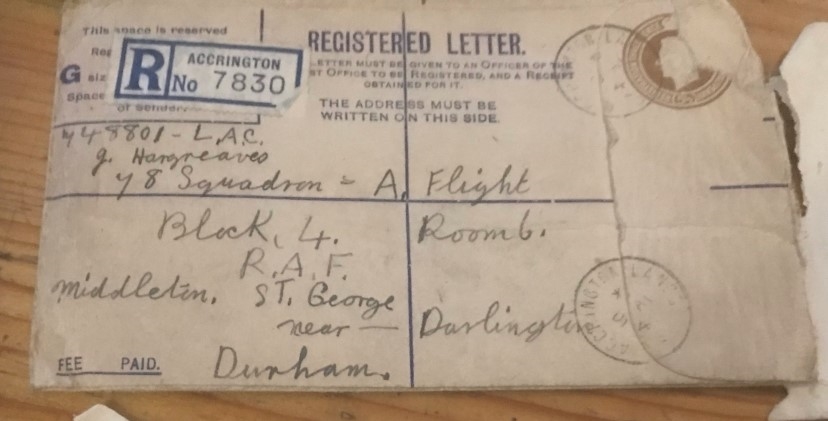 This space is reserved
REGISTERED LETTER.
LETTER MUST BE GIVEN TO AN OFFICER OF THE
ST OFFICE TO BE REGISTERED, AND A RECEIPT
OBTAINED FOR IT.
THE ADDRESS MUST BE
WRITTEN ON THIS SIDE.
G size
Space
of sender.
R ACCRINGTON
No 7830
448801 - L.A.C.
J. Hargreaves
78 Squadron - A. Flight
Block, 4. Room 6.
R.A.F.
Middleton. ST. George
near — Darlington
Durham.
FEE PAID.
ACCRINGTON LANCS